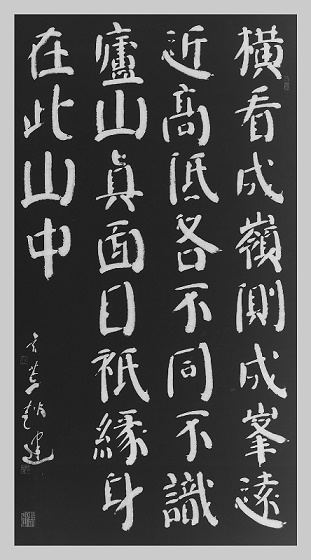 橫看成嶺側成峯遠
近高低各不同不識
廬山真面目祇緣身
在此山中